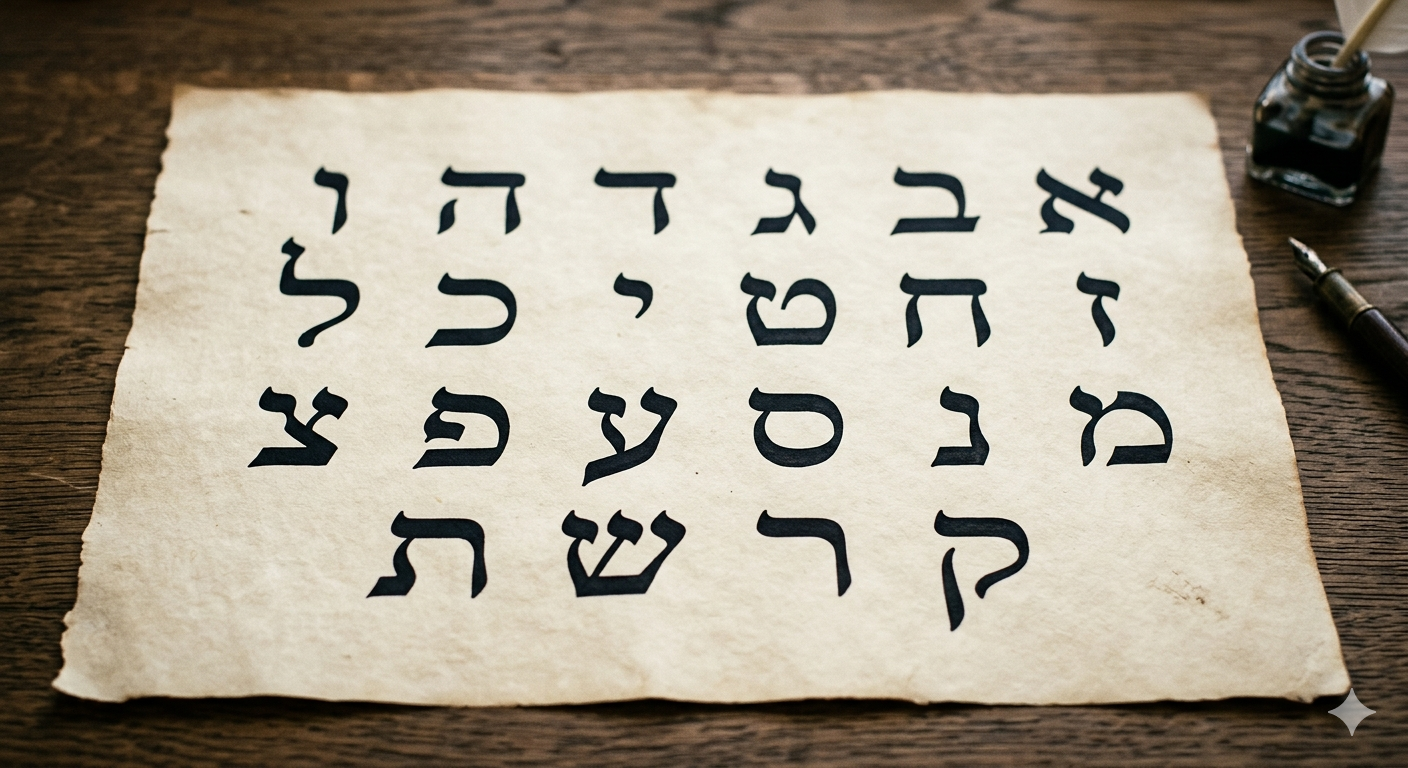 א ב ג ד ה ו
ז ח ט י כ ל
מ נ ס ע פ צ
ק ר ש ת